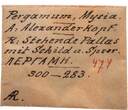 Pergamum, Mysia.
Av. Alexanderkopf.
R. Stehende Pallas
mit Schild u. Speer.
ΠΕΡΓΑΜΗ.
300—283.
474
Æ.